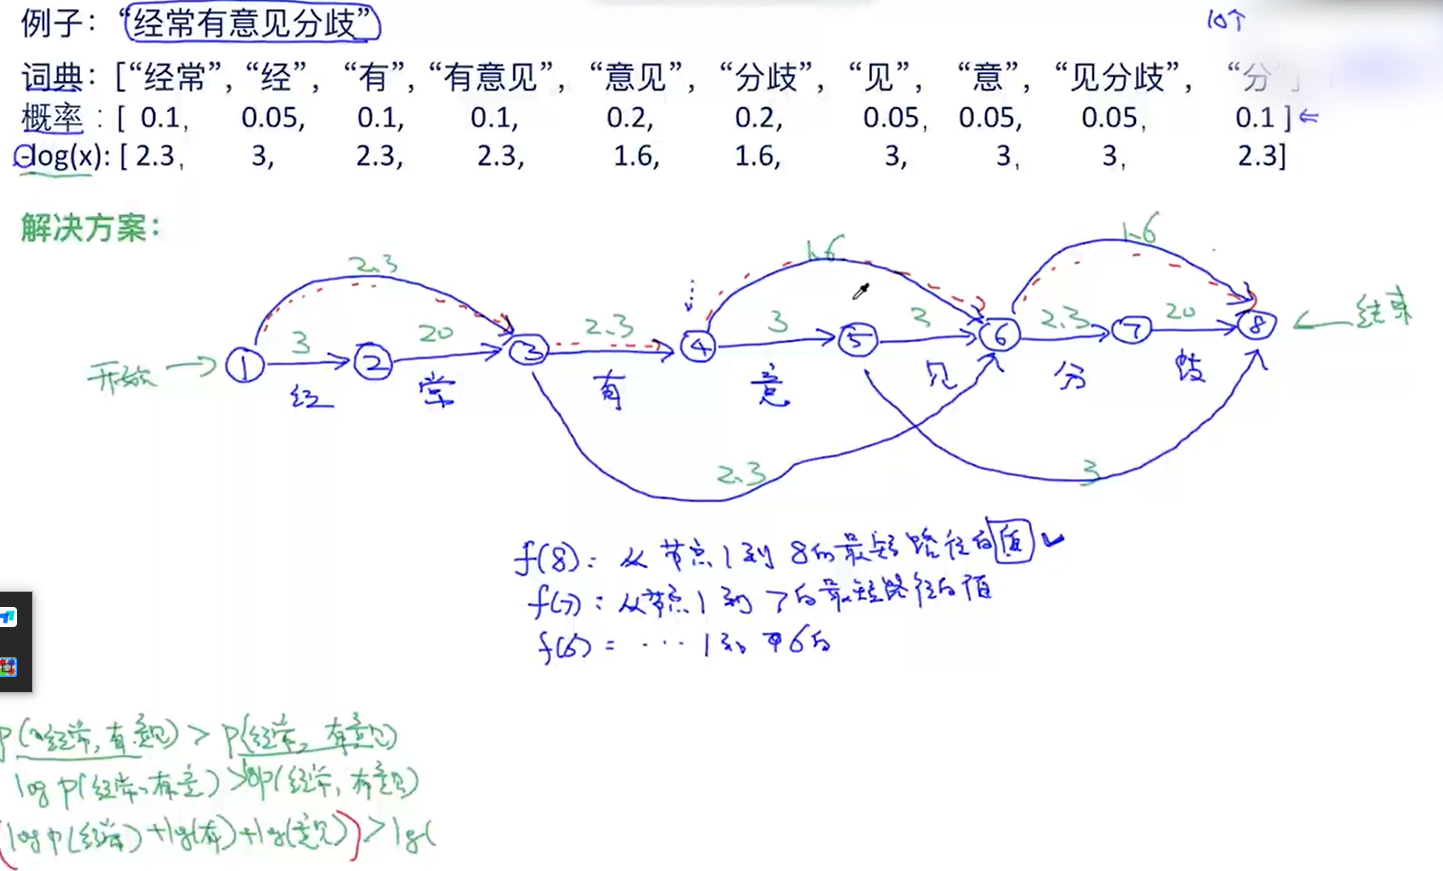 例子：“经常有意见分歧”
10个
词典：[“经常”，“经”，“有”，“有意见”，“意见”，“分歧”，“见”，“意”，“见分歧”，“分”]
概率：[ 0.1, 0.05, 0.1, 0.1, 0.2, 0.2, 0.05, 0.05, 0.05, 0.1 ]⇐
-log(x): [ 2.3, 3, 2.3, 2.3, 1.6, 1.6, 3, 3, 3, 2.3]
解决方案：
2.3 1.6 1.6
3 20 2.3 3 3 2.3 20
开始 → ① ② ③ ④ ⑤ ⑥ ⑦ ⑧ ← 结束
经 常 有 意 见 分 歧
2.3 3
f(8)：从节点1到8的最短路径的值
f(7)：从节点1到7的最短路径的值
f(6) = ···· 1到 6的
P(经常, 有, 意见) > P(经常, 有意见)
log P(经常、有、意) > log P(经常, 有意见)
log P(经常) + log(有) + log(意见)) > log(